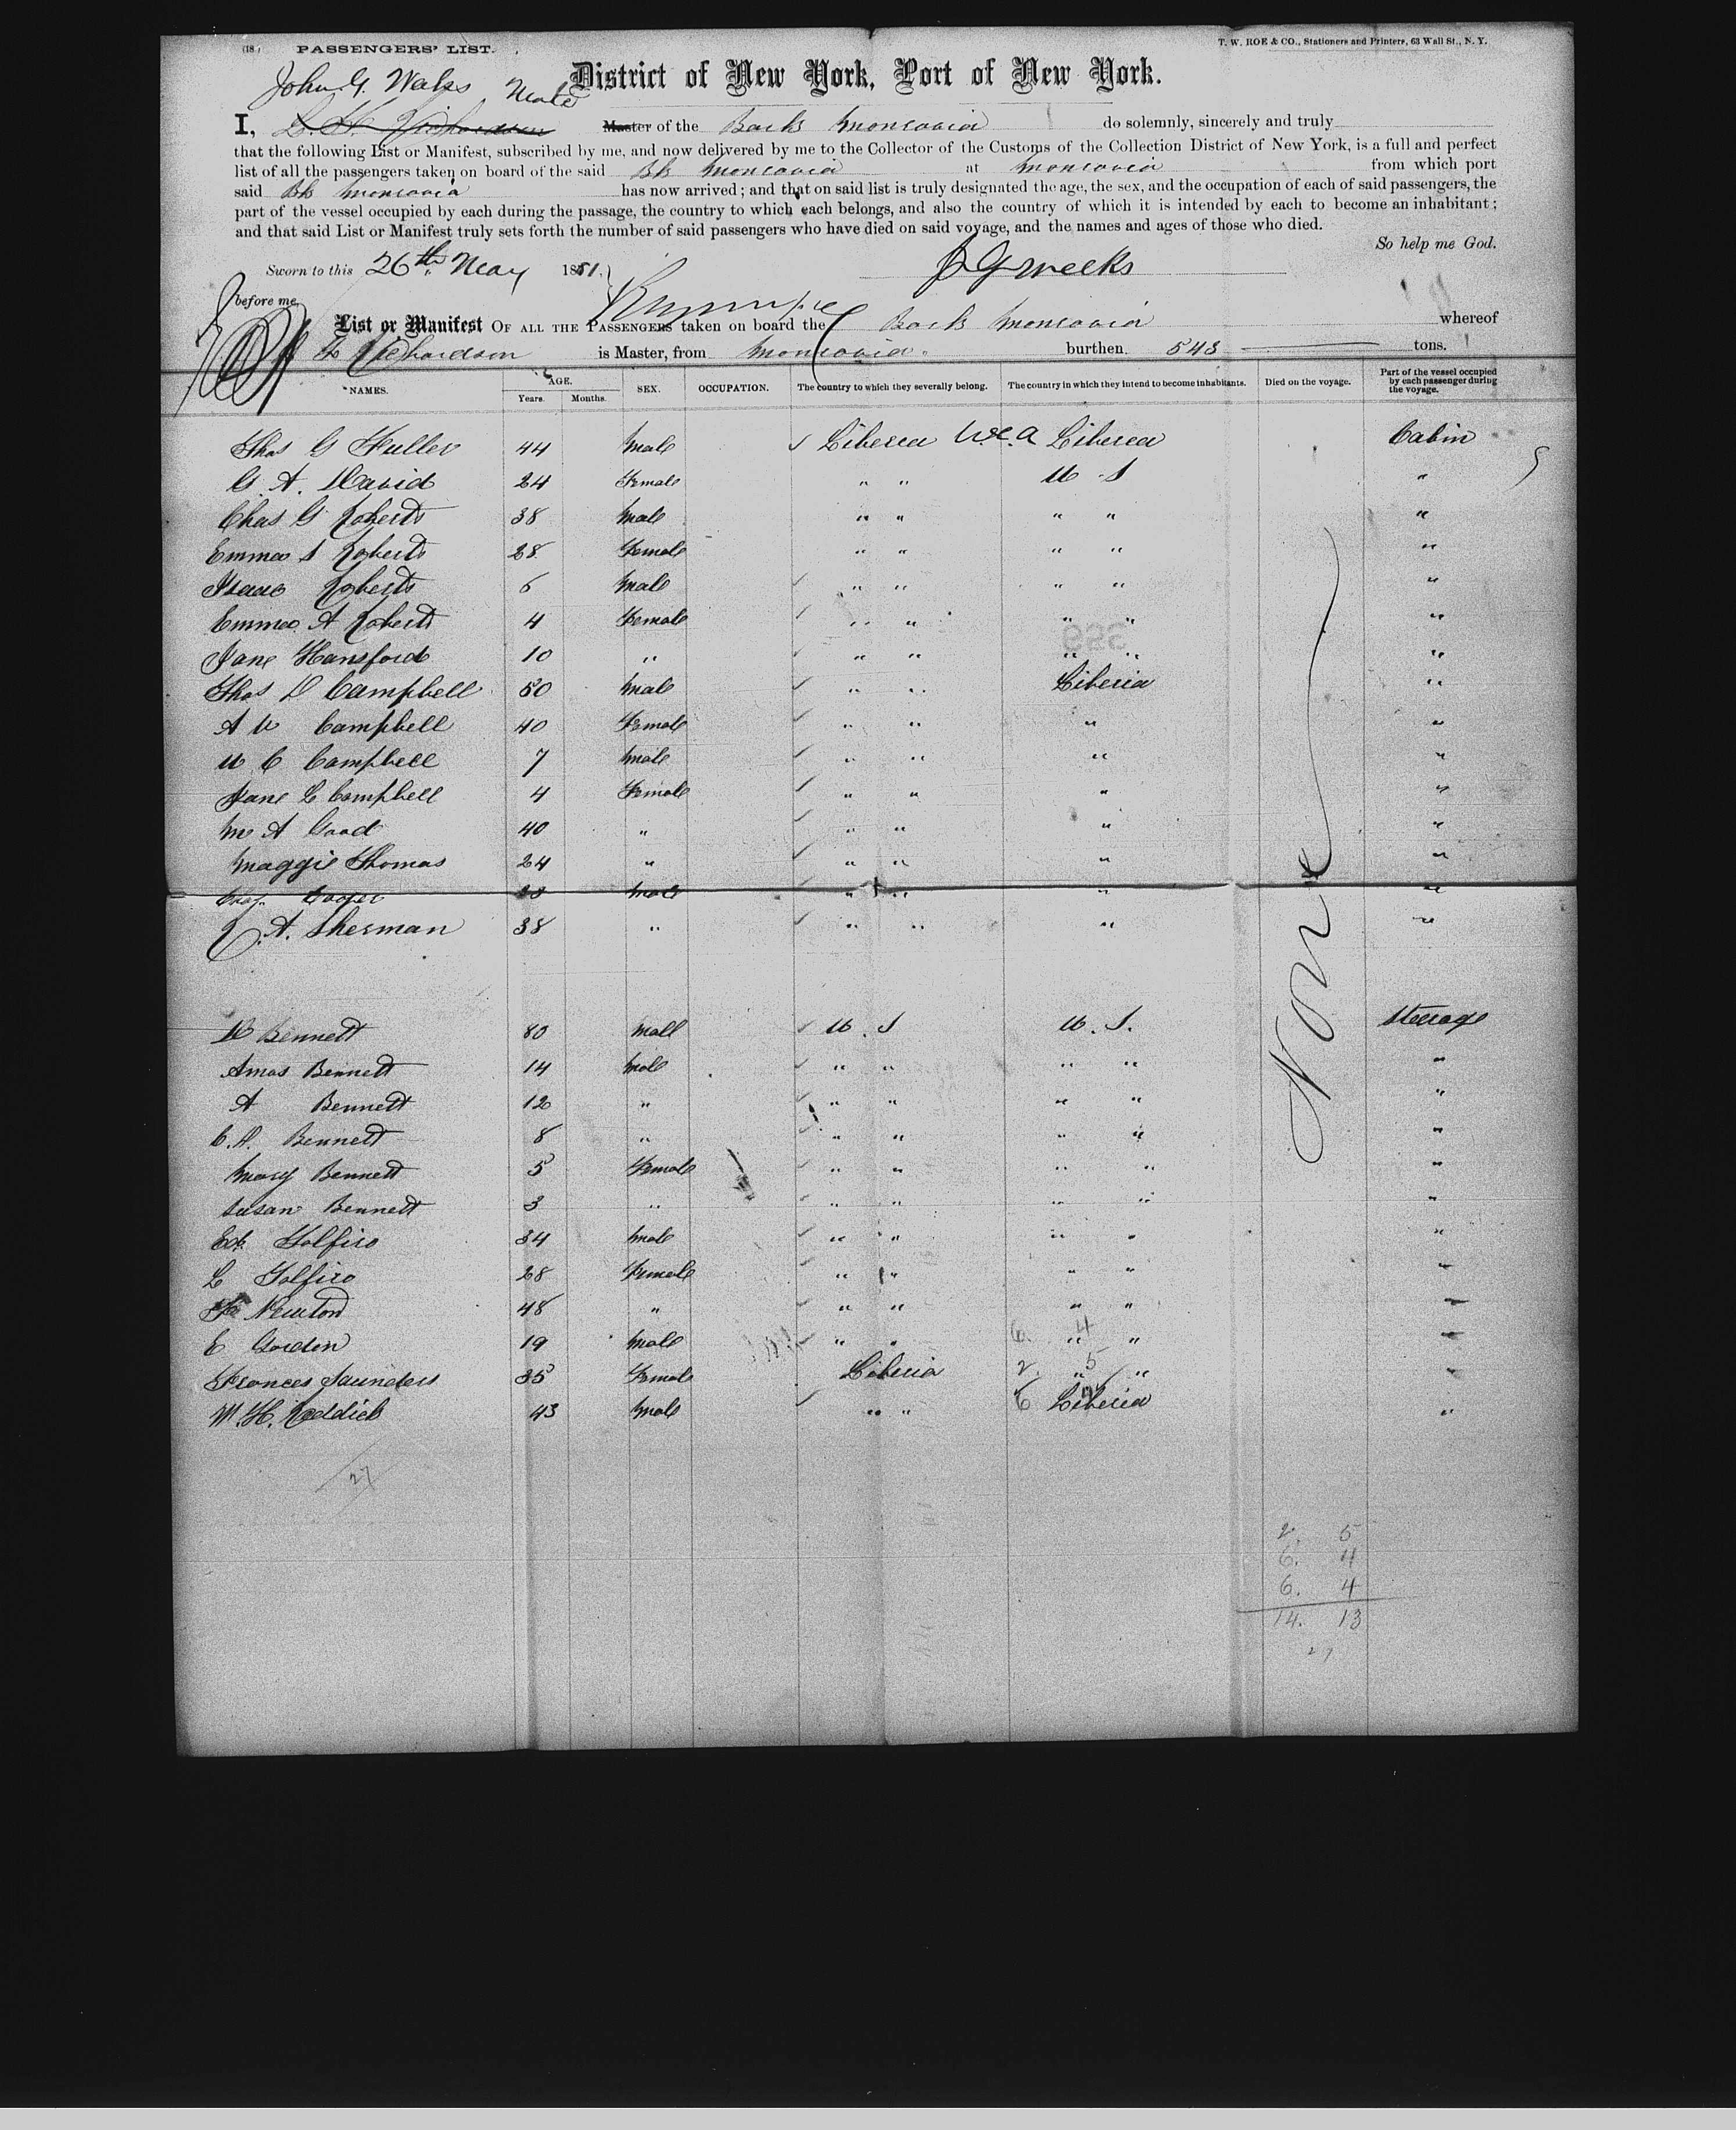 (18.) PASSENGERS' LIST. T. W. ROE & CO., Stationers and Printers, 63 Wall St., N. Y.
District of New York, Port of New York.
John G. Mate
I, Richardson Master of the Bark Monrovia do solemnly, sincerely and truly
that the following List or Manifest, subscribed by me, and now delivered by me to the Collector of the Customs of the Collection District of New York, is a full and perfect
list of all the passengers taken on board of the said Bk Monrovia at Monrovia from which port
said Bk Monrovia has now arrived; and that on said list is truly designated the age, the sex, and the occupation of each of said passengers, the
part of the vessel occupied by each during the passage, the country to which each belongs, and also the country of which it is intended by each to become an inhabitant;
and that said List or Manifest truly sets forth the number of said passengers who have died on said voyage, and the names and ages of those who died.
So help me God.
Sworn to this 26th May 1881. J G Weeks
before me
List or Manifest OF ALL THE PASSENGERS taken on board the Bark Monrovia whereof
Richardson is Master, from Monrovia. burthen 543 tons.
NAMES. AGE. Years. Months. SEX. OCCUPATION. The country to which they severally belong. The country in which they intend to become inhabitants. Died on the voyage. Part of the vessel occupied by each passenger during the voyage.
Thos G Fuller 44 Male Liberia W.C.A Liberia Cabin
G. A. David 24 Female " " U S "
Chas G Roberts 38 Male " " " " "
Emma S Roberts 28 Female " " " " "
Isaac Roberts 6 Male " " " " "
Emma A Roberts 4 Female " " " " "
Jane Hansford 10 " " " " " "
Thos D Campbell 50 Male " " Liberia "
A V Campbell 40 Female " " " "
U C Campbell 7 Male " " " "
Jane L Campbell 4 Female " " " "
M A Good 40 " " " " "
Maggie Thomas 24 " " " " "
Chas. Cooper 28 Male " " " "
R. A. Sherman 38 " " " " "
None
D Bennett 80 Male U. S U. S. Steerage
Amos Bennett 14 Male " " " " "
A Bennett 12 " " " " " "
C. A. Bennett 8 " " " " " "
Mary Bennett 5 Female " " " " "
Susan Bennett 3 " " " " " "
Ed. Tolfiro 34 Male " " " " "
L Tolfiro 28 Female " " " " "
Newton 48 " " " " " "
E Gordon 19 Male " " 6. 4 " " "
Frances Saunders 35 Female Liberia 2. 5 " " "
W. H. Reddick 43 Male " " 6 4 Liberia "
27
2 5
6. 4
6. 4
14. 13
27